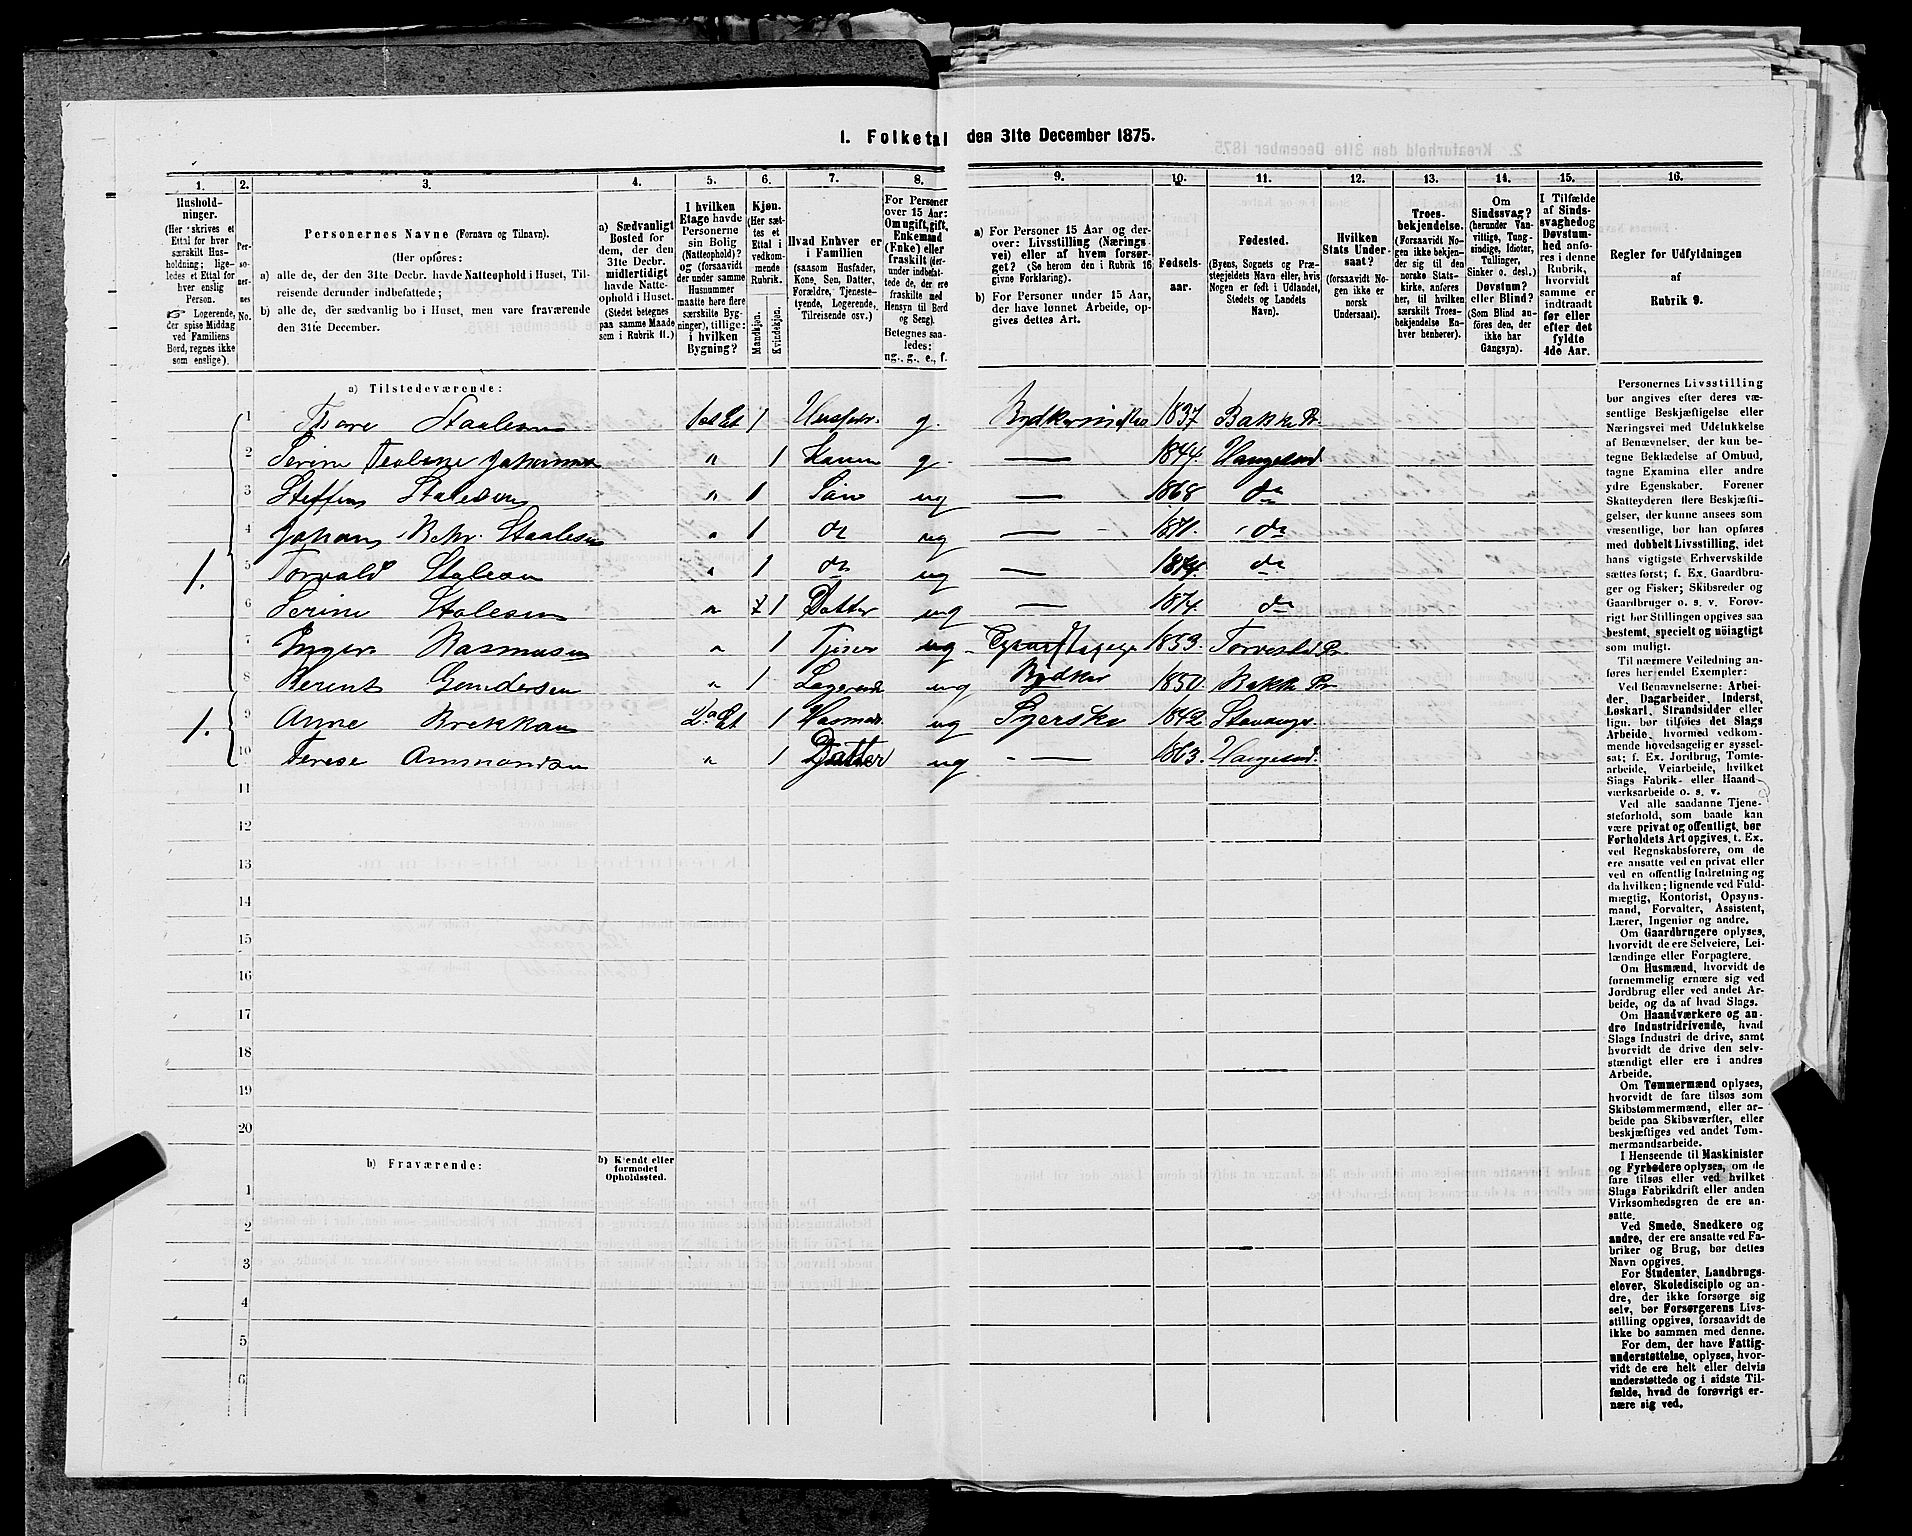 1. Folketal den 31te December 1875.
1. 2. 3. 4. 5. 6. 7. 8. 9. 10. 11. 12. 13. 14. 15. 16.
Hushold-
ninger.
(Her skrives et
Ettal for hver
særskilt Hus-
holdning; lige-
ledes et Ettal for
hver enslig
Person.
☞ Logerende,
der spise Middag
ved Familiens
Bord, regnes ikke
som enslige).
Per-
so-
ner-
nes
No.
Personernes Navne (Fornavn og Tilnavn).
(Her opføres:
a) alle de, der den 31te Decbr. havde Natteophold i Huset, Til-
reisende derunder indbefattede;
b) alle de, der sædvanlig bo i Huset, men vare fraværende
den 31te December.
a) Sædvanligt
Bosted for
dem, der den
31te Decbr.
midlertidigt
havde Natte-
ophold i Huset.
(Stedet betegnes
paa samme Maade
som i Rubrik 11.)
I hvilken
Etage havde
Personerne
sin Bolig
(Natteophold)?
og (forsaavidt
der under samme
Husnummer
maatte høre flere
særskilte Byg-
ninger), tillige:
i hvilken
Bygning?
Kjøn.
(Her sæt-
tes et
Ettal i
vedkom-
mende
Rubrik.
Mandkjøn.
Kvindekjøn.
Hvad Enhver er
i Familien
(saasom Husfader,
Kone, Søn, Datter,
Forældre, Tjeneste-
tyende, Logerende,
Tilreisende osv.)
For Personer
over 15 Aar:
Om ugift, gift,
Enkemand
(Enke) eller
fraskilt (der-
under indbefat-
tede de, der ere
fraskilte med
Hensyn til Bord
og Seng).
Betegnes saa-
ledes:
ug., g., e., f.
a) For Personer 15 Aar og der-
over: Livsstilling (Nærings-
vei) eller af hvem forsør-
get? (Se herom den i Rubrik 16
givne Forklaring).
b) For Personer under 15 Aar,
der have lønnet Arbeide, op-
gives dettes Art.
Fødsels-
aar.
Fødested.
(Byens, Sognets og Præ-
stegjeldets Navn eller, hvis
Nogen er født i Udlandet,
Stedets og Landets
Navn).
Hvilken
Stats Under-
saat?
(forsaavidt No-
gen ikke er
norsk
Undersaat).
Troes-
bekjendelse.
(Forsaavidt No-
gen ikke bekjen-
der sig til den
norske Stats-
kirke, anføres
her, til hvilken
særskilt Troes-
bekjendelse En-
hver henhører).
Om
Sindssvag?
(herunder Van-
vittige, Tung-
sindige, Idioter,
Tullinger,
Sinker o. desl.)
Døvstum?
eller Blind?
(Som Blind an-
føres den, der
ikke har
Gangsyn).
I Tilfælde
af Sinds-
svaghed og
Døvstum-
hed anfø-
res i denne
Rubrik,
hvorvidt
samme er
indtraadt
før eller
efter det
fyldte
4de Aar.
Regler for Udfyldningen
af
Rubrik 9.
a) Tilstedeværende:
1 Thore Staalesen 1st Et 1 Husfadr. g. 1837 Bakke Pr.
2 Serine " 1 Konen g. — 1844. Haugesund
3 Steffen Stalesen " 1 Søn ug — 1868 do
4 Johan Staalesen " 1 do ug — 1871. do
1. 5 Torvald Stalesen " 1 do ug — do
6 Serine Stalesen " 1 Datter ug — 1874. do
7 Inger Rasmusen " 1 ug 1853. Pr.
8 Berent Gundersen " 1 Logerende ug Bødker 1850. Bakke Pr
1. 9 Anne 2. Et 1 ug 1842 Stavanger
10 Terese Ammundsen " 1 Datter ug — 1863. Haugesund.
11
12
13
14
15
16
17
18
19
20
b) Fraværende:
b) Kjendt eller
formodet
Opholdssted.
1
2
3
4
5
6
Personernes Livsstilling
bør angives efter deres væ-
sentlige Beskjæftigelse eller
Næringsvei med Udelukkelse
af Benævnelser, der kun be-
tegne Beklædelse af Ombud,
tagne Examina eller andre
ydre Egenskaber. Forener
Skatteyderen flere Beskjæfti-
gelser, der kunne ansees som
væsentlige, bør han opføres
med dobbelt Livsstilling, idet
hans vigtigste Erhvervskilde
sættes først; f. Ex. Gaardbru-
ger og Fisker; Skibsreder og
Gaardbruger o. s. v. Forøv-
rigt bør Stillingen opgives saa
bestemt, specielt og nöiagtigt
som muligt.
Til nærmere Veiledning an-
føres her endel Exempler:
Ved Benævnelserne: Arbei-
der, Dagarbeider, Inderst,
Løskarl, Strandsidder eller
lign. bør tilføies det Slags
Arbeide, hvormed vedkom-
mende hovedsagelig er syssel-
sat; f. Ex. Jordbrug, Tomte-
arbeide, Veiarbeide, hvilket
Slags Fabrik- eller Haand-
værksarbeide o. s. v.
Ved alle saadanne Tjene-
steforhold, som baade kan
være privat og offentligt, bør
Forholdets Art opgives, t. Ex.
ved Regnskabsførere, om de
ere ansatte ved en privat eller
ved en offentlig Indretning og
da hvilken; lignende ved Fuld-
mægtig, Kontorist, Opsyns-
mand, Forvalter, Assistent,
Lærer, Ingeniør og andre.
Om Gaardbrugere oplyses,
hvorvidt de ere Selveiere, Lei-
lændinge eller Forpagtere.
Om Husmænd, hvorvidt de
fornemmelig ernære sig ved
Jordbrug eller ved andet Ar-
beide, og da af hvad Slags.
Om Haandværkere og an-
dre Industridrivende, hvad
Slags Industri de drive, samt
hvorvidt de drive den selv-
stændigt eller ere i andres
Arbeide.
Om Tømmermænd oplyses,
hvorvidt de fare tilsøs som
Skibstømmermænd, eller ar-
beide paa Skibsværfter, eller
beskjæftiges ved andet Tøm-
mermandsarbeide.
I Henseende til Maskinister
og Fyrbødere oplyses, om de
fare tilsøs eller ved hvilket
Slags Fabrikdrift eller anden
Virksomhedsgren de ere an-
satte.
Ved Smede, Snedkere og
andre, der ere ansatte ved Fa-
briker og Brug, bør dettes
Navn opgives.
For Studenter, Landbrugs-
elever, Skoledisciple og an-
dre, der ikke forsørge sig
selv, bør Forsørgerens Livs-
stilling opgives, forsaavidt de
ikke bo sammen med denne.
For dem, der have Fattig-
understøttelse, oplyses, hvor-
vidt de ere helt eller delvis
understøttede og i sidste Til-
fælde, hvad de forøvrigt er-
nære sig ved.